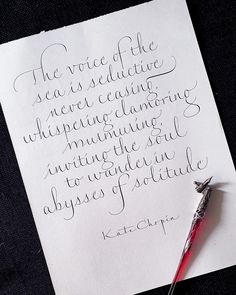 The voice of the
sea is seductive
never ceasing,
whispering, clamoring
murmuring,
inviting the soul
to wander in
abysses of solitude
Kate Chopin